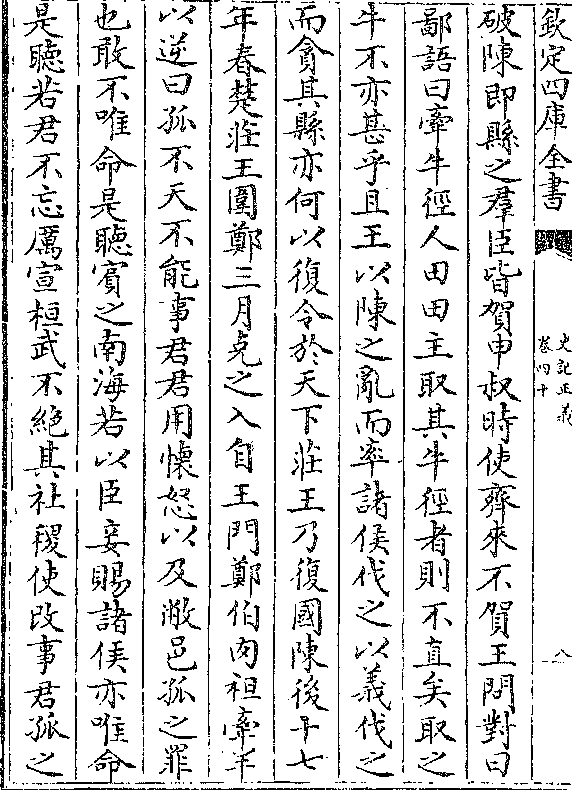 欽定四庫全書
史記正義
卷四十
八
破陳即縣之羣臣皆賀申叔時使齊來不賀王問對曰
鄙語曰牽牛徑人田田主取其牛徑者則不直矣取之
牛不亦甚乎且王以陳之亂而率諸侯伐之以義伐之
而貪其縣亦何以復令於天下莊王乃復國陳後十七
年春楚莊王圍鄭三月克之入自王門鄭伯肉袒牽羊
以逆曰孤不天不能事君君用懷怒以及敝邑孤之罪
也敢不唯命是聽賓之南海若以臣妾賜諸侯亦唯命
是聽若君不忘厲宣桓武不絕其社稷使改事君孤之